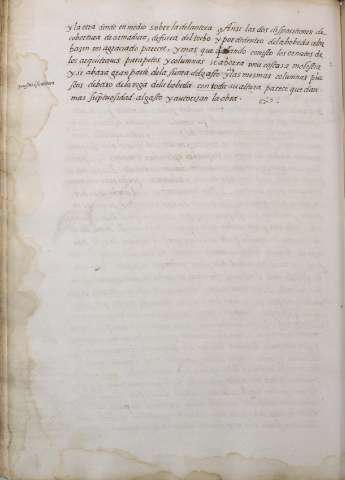 y la otra dando en medio sobre la delantera. Ansi las dos disposiciones de
cobertura de armadura, defuera del techo y por de dentro de la bobeda
hazen un agraciado parecer, y mas que quitando con esto los ornatos de
los arquitraves parapetos y columnas se ahorra una costosa molestia
y se abaxa gran parte de la suma del gasto y las mesmas columnas
debaxo de la voga de la bobeda con toda su altura, parece que dan
mas sumptuosidad al gasto y autorizan la obra.